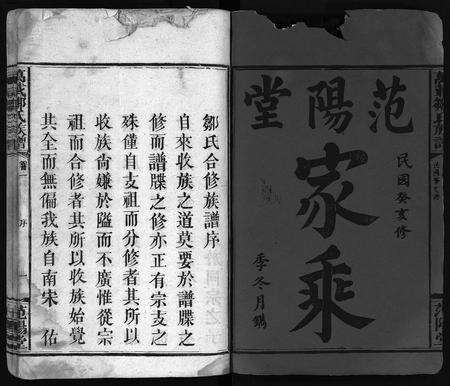 范陽堂
民國癸亥修
家乘
季冬月鐫
鄒氏合修族譜序
自來收族之道莫要於譜牒之
修而譜牒之修亦正有宗支之
殊僅自支祖而分修者其所以
收族尚嫌於隘而不廣惟從宗
祖而合修者其所以收族始覺
共全而無偏我族自南宋 佑
萬載鄒氏族譜
首一
序
一
范陽堂